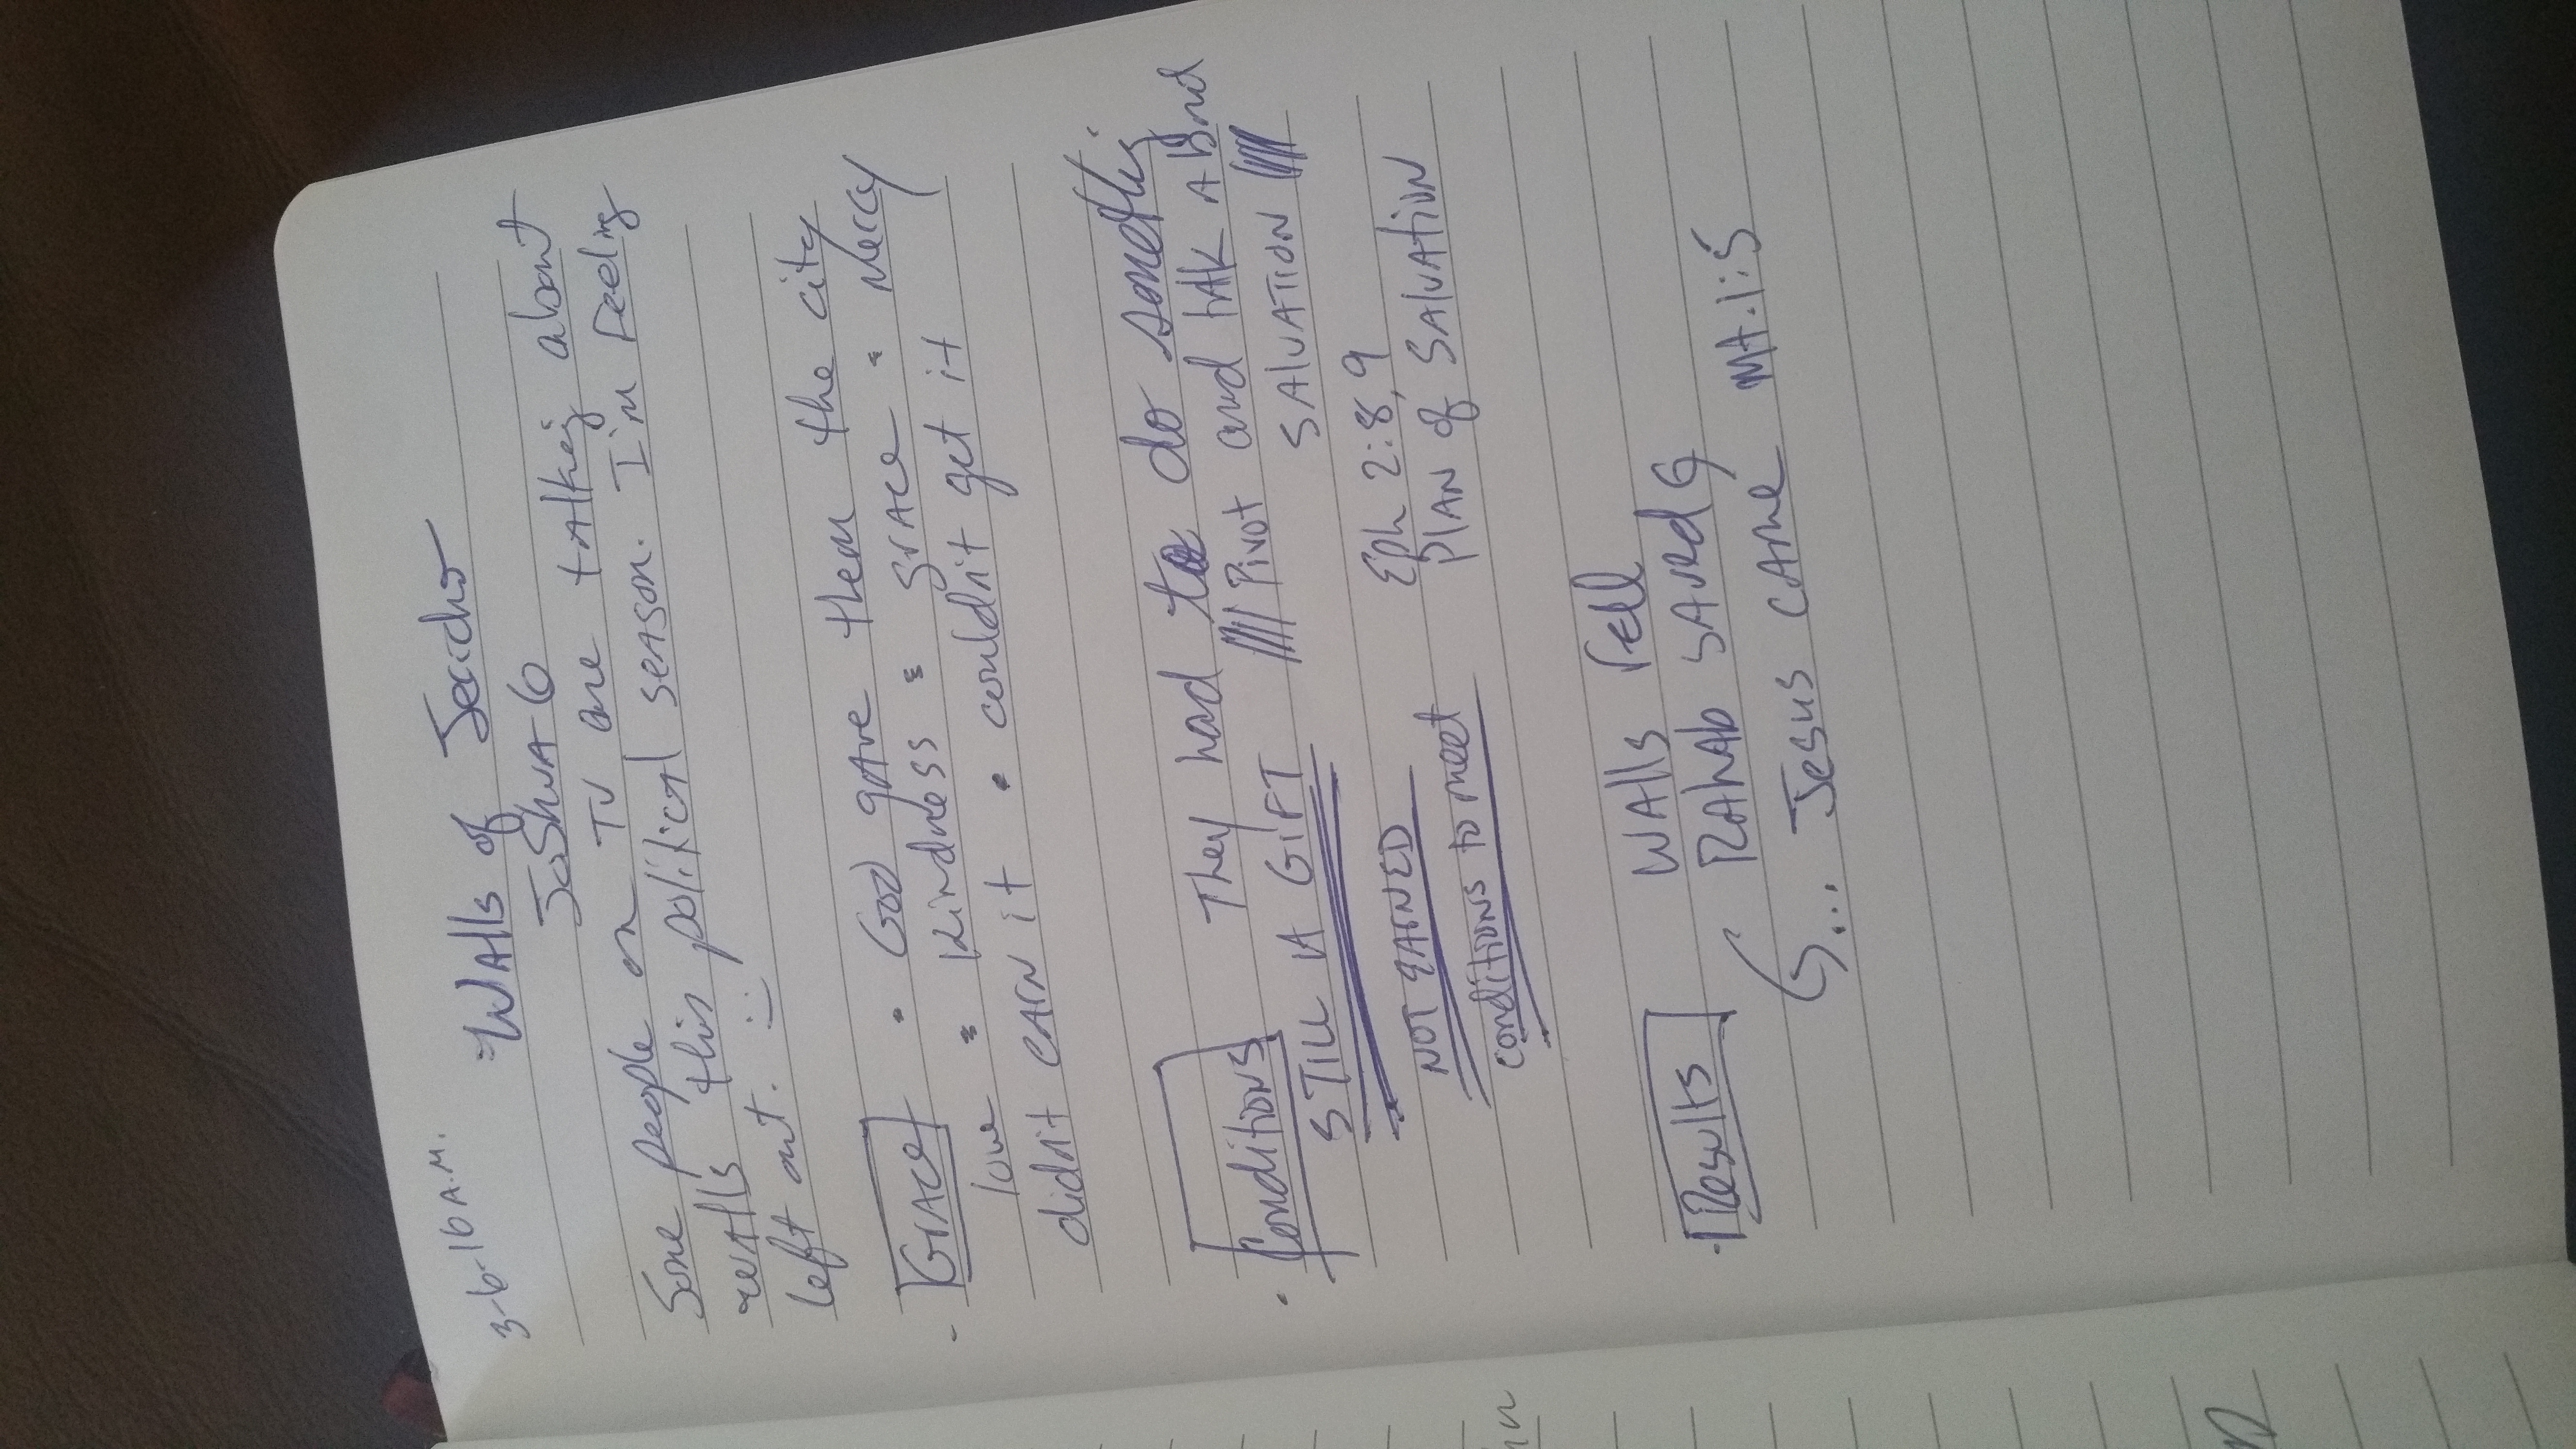 3-6-16 A.M.
"Walls of Jericho
Joshua 6
Some people on TV are talking about
walls this political season. I'm feeling
left out. :)
- Grace • God gave them the city
love = kindness = grace = Mercy
didn't earn it • couldn't get it
• Conditions They had to do something
STILL A GIFT //// Pivot and talk about
SALVATION ////
NOT EARNED Eph 2:8,9
conditions to meet Plan of Salvation
• Results Walls fell
Rahab saved
... Jesus came Mt. 1:5